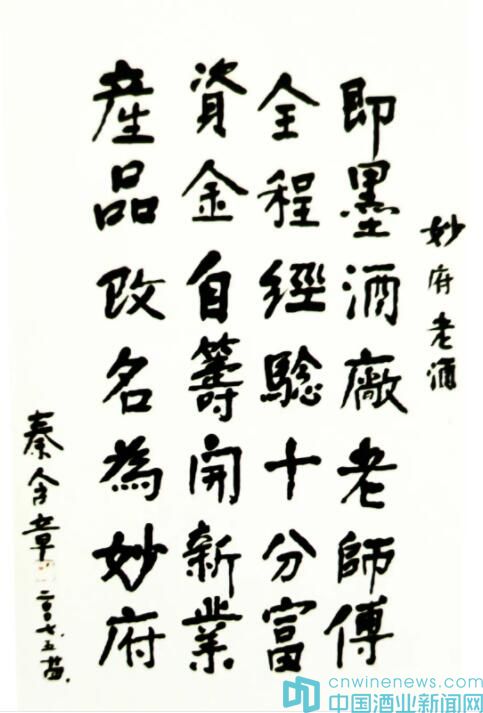 妙府老酒
即墨酒廠老師傅
全程經驗十分富
資金自籌開新業
產品改名為妙府
秦含章
二〇〇七.五
cnwinenews.com
中国酒业新闻网